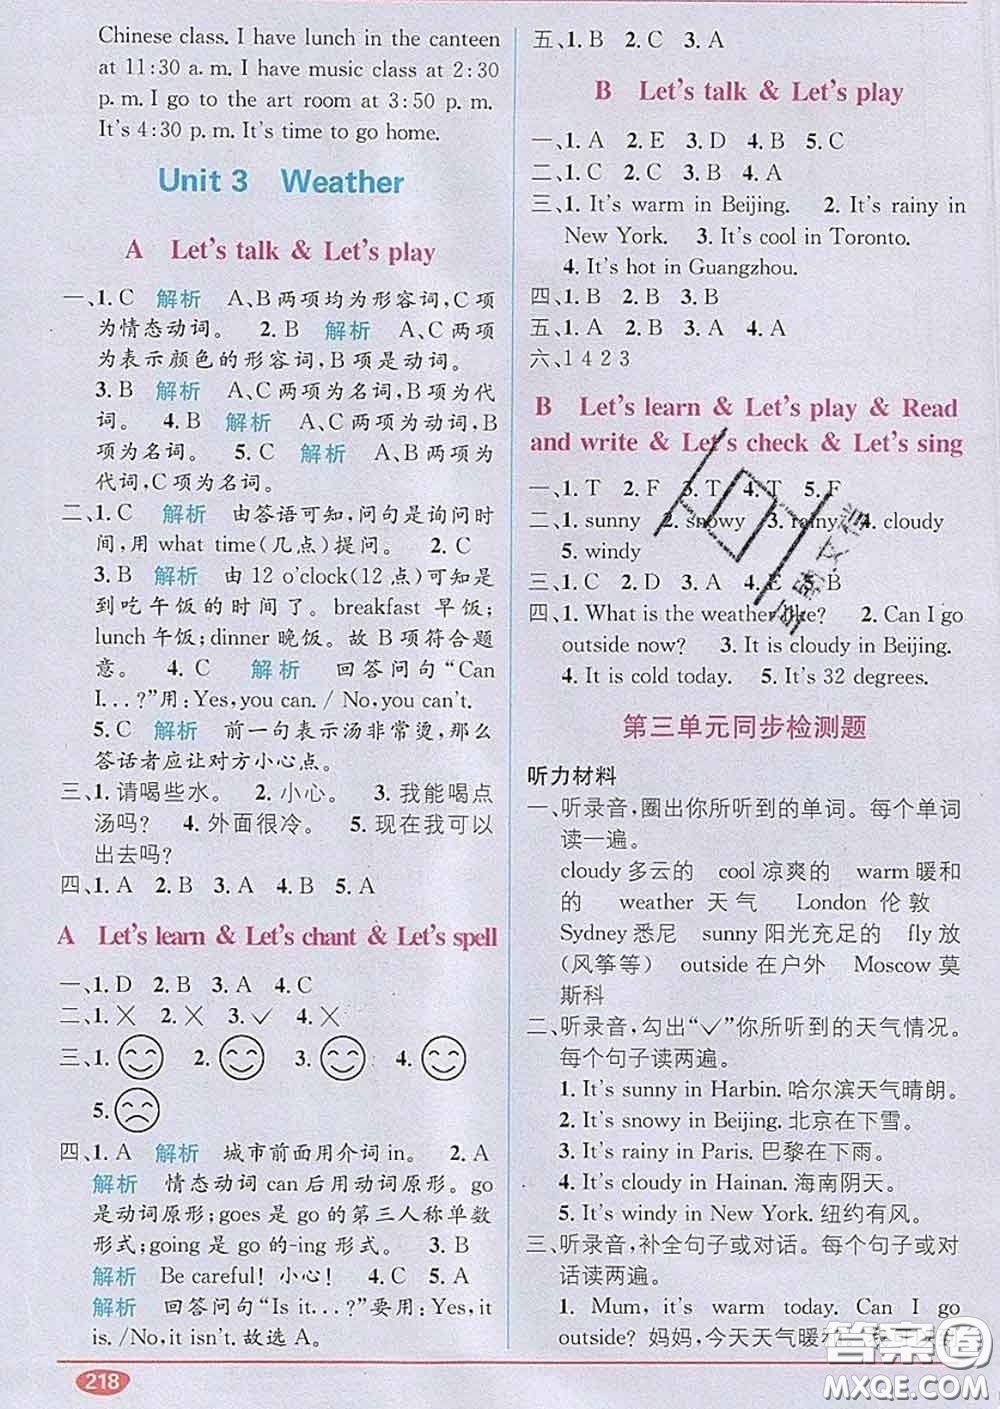 Chinese class. I have lunch in the canteen
at 11:30 a. m. I have music class at 2:30
p. m. I go to the art room at 3:50 p. m.
It's 4:30 p. m. It's time to go home.
Unit 3 Weather
A Let's talk & Let's play
一、1. C 解析 A、B两项均为形容词,C项
为情态动词。 2. B 解析 A、C两项
为表示颜色的形容词,B项是动词。
3. B 解析 A、C两项为名词,B项为代
词。 4. B 解析 A、C两项为动词,B
项为名词。 5. C 解析 A、B两项为
代词,C项为名词。
二、1. C 解析 由答语可知,问句是询问时
间,用 what time(几点)提问。 2. C
3. B 解析 由 12 o'clock(12 点)可知
到吃午饭的时间了。breakfast 早饭;
lunch 午饭;dinner 晚饭。故 B 项符合题
意。 4. C 解析 回答问句“Can
I. . . ?”用:Yes,you can. / No,you can't.
5. C 解析 前一句表示汤非常烫,那么
答话者应让对方小心点。
三、1. 请喝些水。 2. 小心。 3. 我能喝点
汤吗? 4. 外面很冷。 5. 现在我可以
出去吗?
四、1. A 2. B 3. A 4. B 5. A
A Let's learn & Let's chant & Let's spell
一、1. D 2. B 3. A 4. C
二、1. × 2. × 3. ✓ 4. ×
三、1. 2. 3. 4.
5.
四、1. A 解析 城市前面用介词 in。 2. A
解析 情态动词 can 后用动词原形。go
是动词原形;goes 是 go 的第三人称单数
形式;going 是 go 的-ing 形式。 3. B
解析 Be careful! 小心! 4. C 5. A
解析 回答问句“Is it. . . ?”要用:Yes,it
is. /No,it isn't. 故选 A。
218
五、1. B 2. C 3. A
B Let's talk & Let's play
一、1. A 2. E 3. D 4. B 5. C
二、1. C 2. C 3. B 4. A
三、1. It's warm in Beijing. 2. It's rainy in
New York. 3. It's cool in Toronto.
4. It's hot in Guangzhou.
四、1. B 2. B 3. B
五、1. A 2. B 3. A 4. A
六、1 4 2 3
B Let's learn & Let's play & Read
and write & Let's check & Let's sing
一、1. T 2. F 3. T 4. T 5. F
二、1. sunny 2. snowy 3. rainy 4. cloudy
5. windy
三、1. C 2. D 3. A 4. E 5. B
四、1. What is the weather like? 2. Can I go
outside now? 3. It is cloudy in Beijing.
4. It is cold today. 5. It's 32 degrees.
第三单元同步检测题
听力材料
一、听录音,圈出你所听到的单词。每个单词
读一遍。
cloudy 多云的 cool 凉爽的 warm 暖和
的 weather 天气 London 伦敦
Sydney 悉尼 sunny 阳光充足的 fly 放
(风筝等) outside 在户外 Moscow 莫
斯科
二、听录音,勾出“✓”你所听到的天气情况。
每个句子读两遍。
1. It's sunny in Harbin. 哈尔滨天气晴朗。
2. It's snowy in Beijing. 北京在下雪。
3. It's rainy in Paris. 巴黎在下雨。
4. It's cloudy in Hainan. 海南阴天。
5. It's windy in New York. 纽约有风。
三、听录音,补全句子或对话。每个句子或对
话读两遍。
1. Mum, it's warm today. Can I go
outside? 妈妈,今天天气暖和
答案圈
MXQE.COM